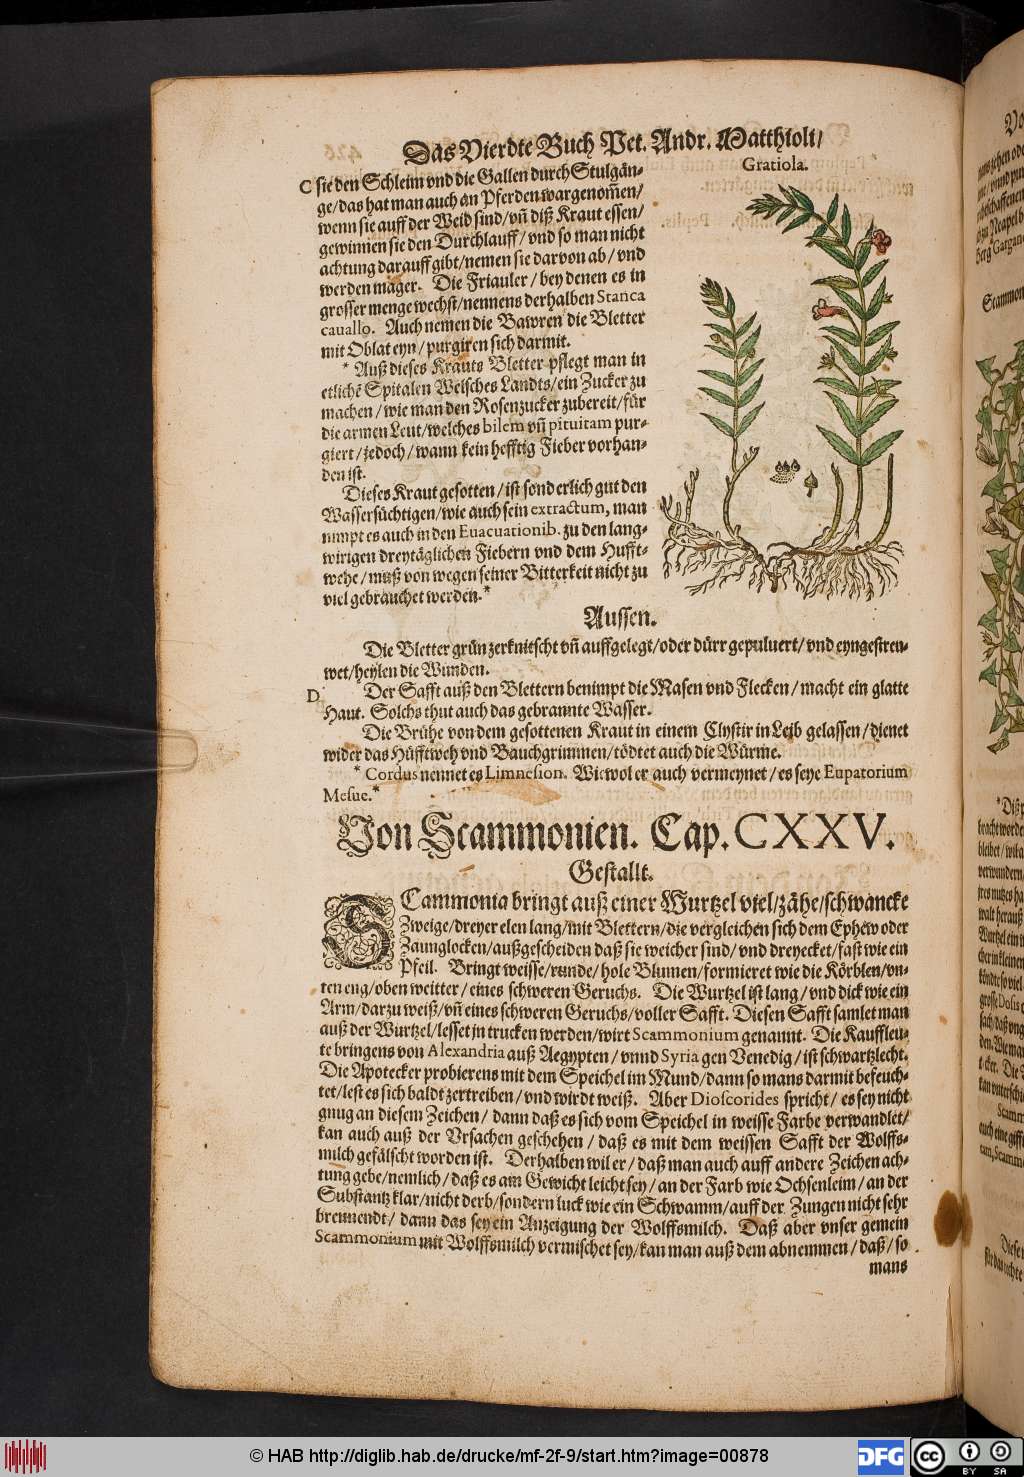 Das Vierdte Buch Pet. Andr. Matthioli/
Gratiola.
C sie den Schleim vnd die Gallen durch Stulgän-
ge/das hat man auch an Pferden wargenom̃en/
wenn sie auff der Weid sind/vñ diß Kraut essen/
gewinnen sie den Durchlauff/vnd so man nicht
achtung darauff gibt/nemen sie darvon ab/vnd
werden mager. Die Friauler/bey denen es in
grosser menge wechst/nennens derhalben Stanca
cauallo. Auch nemen die Bawren die Bletter
mit Oblat eyn/purgiren sich darmit.
* Auß dieses Krauts Bletter pflegt man in
etlichẽ Spitalen Welsches Landts/ein Zucker zu
machen/wie man den Rosenzucker zubereit/für
die armen Leut/welches bilem vñ pituitam pur-
giert/jedoch/wann kein hefftig Fieber vorhan-
den ist.
Dieses Kraut gesotten/ist sonderlich gut den
Wassersüchtigen/wie auch sein extractum, man
nimpt es auch in den Euacuationib. zu den lang-
wirigen dreytäglichen Fiebern vnd dem Hufft-
wehe/muß von wegen seiner Bitterkeit nicht zu
viel gebrauchet werden.*
Aussen.
Die Bletter grün zerknitscht vñ auffgelegt/oder dürr gepuluert/vnd eyngestreu-
wet/heylen die Wunden.
D Der Safft auß den Blettern benimpt die Masen vnd Flecken/macht ein glatte
Haut. Solchs thut auch das gebrannte Wasser.
Die Brühe von dem gesottenen Kraut in einem Clystir in Leib gelassen/dienet
wider das Hüfftweh vnd Bauchgrimmen/tödtet auch die Würme.
* Cordus nennet es Limnesion. Wiewol er auch vermeynet/es seye Eupatorium
Mesue.*
Von Scammonien. Cap. CXXV.
Gestallt.
SCammonia bringt auß einer Wurtzel viel/zähe/schwancke
Zweige/dreyer elen lang/mit Blettern/die vergleichen sich dem Ephew oder
Zaunglocken/außgescheiden daß sie weicher sind/vnd dreyecket/fast wie ein
Pfeil. Bringt weisse/runde/hole Blumen/formieret wie die Körblen/vn-
ten eng/oben weitter/eines schweren Geruchs. Die Wurtzel ist lang/vnd dick wie ein
Arm/darzu weiß/vñ eines schweren Geruchs/voller Safft. Diesen Safft samlet man
auß der Wurtzel/lesset jn trucken werden/wirt Scammonium genannt. Die Kauffleu-
te bringens von Alexandria auß Aegypten/vnnd Syria gen Venedig/ist schwartzlecht.
Die Apotecker probierens mit dem Speichel im Mund/dann so mans darmit befeuch-
tet/lest es sich baldt zertreiben/vnd wirdt weiß. Aber Dioscorides spricht/es sey nicht
gnug an diesem Zeichen/dann daß es sich vom Speichel in weisse Farbe verwandlet/
kan auch auß der Vrsachen geschehen/daß es mit dem weissen Safft der Wolffs-
milch gefälscht worden ist. Derhalben wil er/daß man auch auff andere Zeichen ach-
tung gebe/nemlich/daß es am Gewicht leicht sey/an der Farb wie Ochsenleim/an der
Substantz klar/nicht derb/sondern luck wie ein Schwamm/auff der Zungen nicht sehr
brennendt/dann das sey ein Anzeigung der Wolffsmilch. Daß aber vnser gemein
Scammonium mit Wolffsmilch vermischet sey/kan man auß dem abnemmen/daß/so
mans
© HAB http://diglib.hab.de/drucke/mf-2f-9/start.htm?image=00878
DFG
cc BY SA